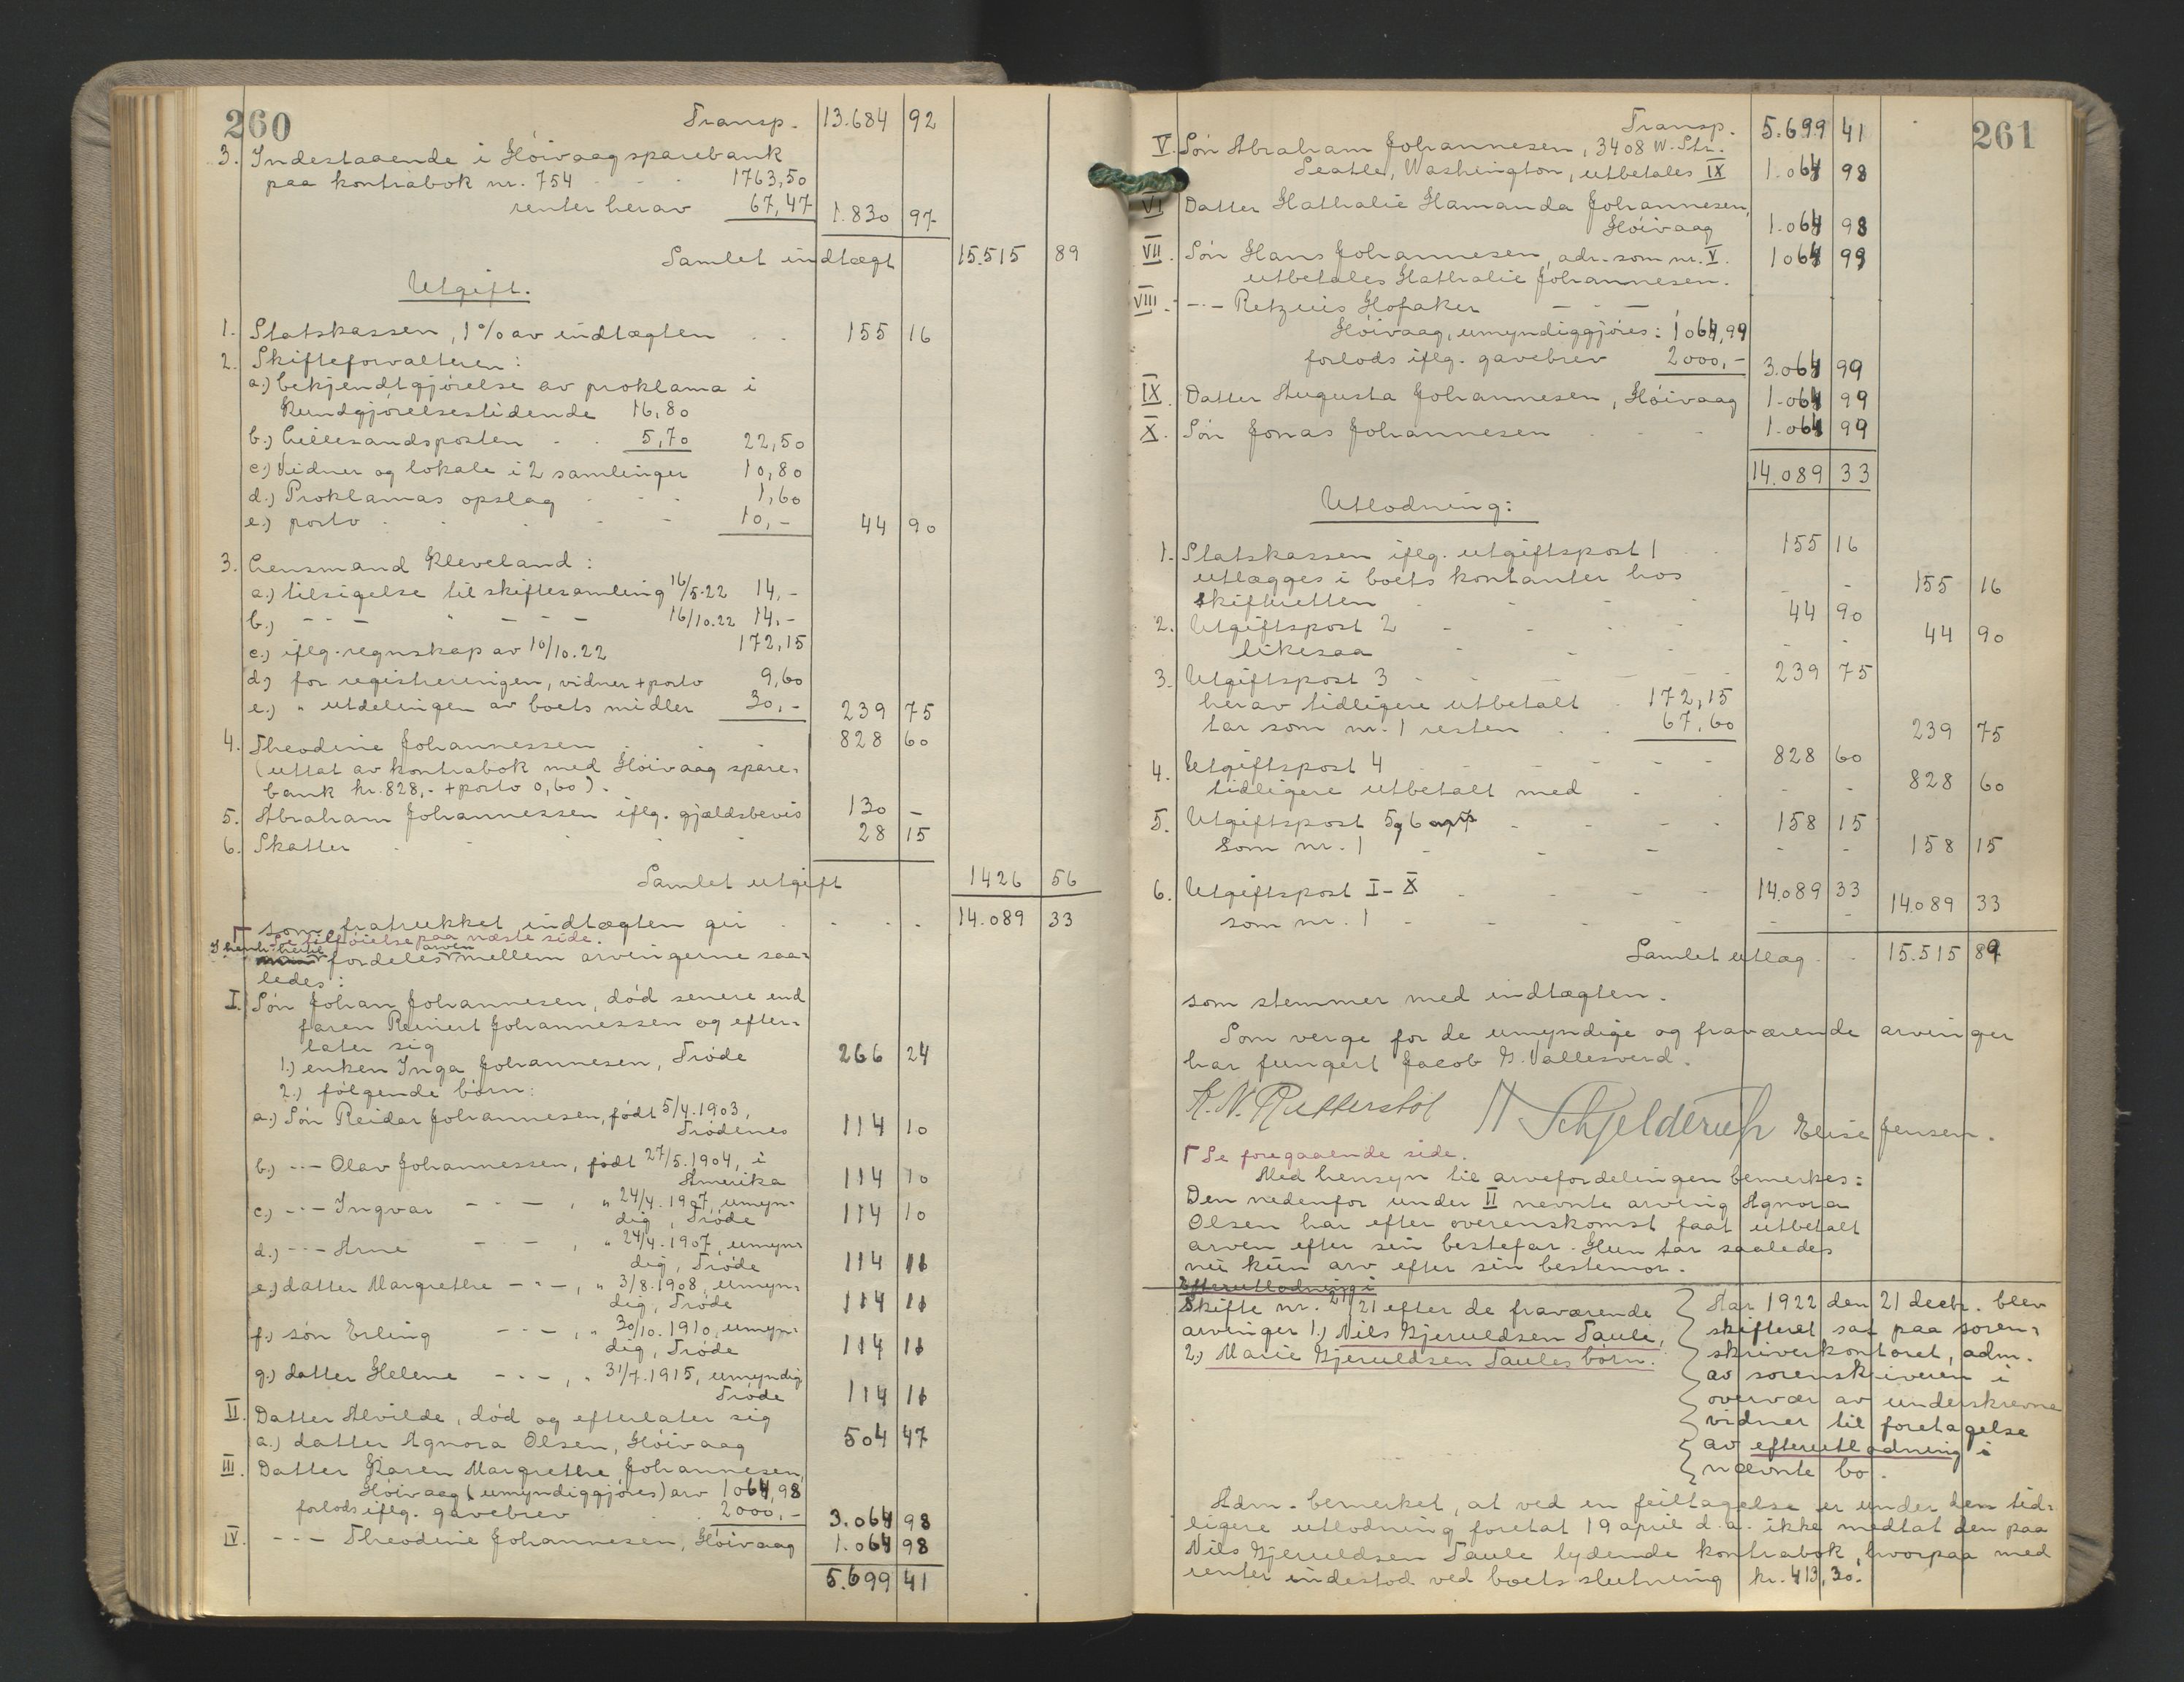 260
Transp. 13.684 92
3. Indestaaende i Høivaag sparebank
paa kontrabok nr. 754 - - - 1763,50
renter herav 67,47 1.830 97
Samlet indtægt 15.515 89
Utgift.
1. Statskassen, 1% av indtægten . . 155 16
2. Skifteforvalteren:
a.) bekjendtgjørelse av proklama i
Kundgjørelsestidende 16,80
b.) Lillesandsposten - . 5,70 22,50
c.) Vidner og lokale i 2 samlinger 10,80
d.) Proklamas opslag - - - 1,60
e.) porto . . . - - 10,- 44 90
3. Lensmand Kleveland:
a.) tilsigelse til skiftesamling 16/5.22 14,-
b.) - - - " - - - 16/10.22 14,-
c.) iflg. regnskap av 10/10.22 172,15
d.) for registreringen, vidner + porto 9,60
e.) " utdelingen av boets midler 30,- 239 75
4. Theodine Johannessen . . . 828 60
(uttat av kontrabok med Høivaag spare-
bank kr. 828,- + porto 0,60).
5. Abraham Johannessen iflg. gjældsbevis 130 -
6. Skatter . . . . 28 15
Samlet utgift 1426 56
som fratrukket indtægten gir . - . . 14.089 33
Γ Se tilføielse paa næste side.
fordeles arven mellem arvingerne saa-
ledes:
I. Søn Johan Johannesen, død senere end
faren Reinert Johannessen og efter-
later sig
1.) enken Inga Johannesen, Trøde 266 24
2.) følgende børn:
a.) Søn Reidar Johannesen, født 5/4.1903,
Trødenes 114 10
b.) -·- Olav Johannessen, født 27/5.1904, i
Amerika 114 10
c.) -·- Ingvar - - - , " 24/4.1907, umyn-
dig, Trøde 114 10
d.) -·- Arne - - - , " 24/4.1907, umyn-
dig, Trøde 114 11
e.) datter Margrethe - " -, " 3/8.1908, umyn-
dig, Trøde 114 11
f.) søn Erling - - - , " 30/10.1910, umyn-
dig, Trøde 114 11
g.) datter Helene - - -, " 31/7.1915, umyndig
Trøde 114 11
II. Datter Alvilde, død og efterlater sig
a.) datter Agnora Olsen, Høivaag 504 47
III. Datter Karen Margrethe Johannesen,
Høivaag (umyndiggjøres) arv 1064,98
forlods iflg. gavebrev . . 2000,- 3.064 98
IV. - - - Theodine Johannesen, Høivaag 1.064 98
5.699 41
261
Transp. 5.699 41
V. Søn Abraham Johannesen, 3408 W. Str.
Seatle, Washington, utbetales IX 1.064 98
VI Datter Hathalie Hamanda Johannesen,
Høivaag 1.064 98
VII. Søn Hans Johannesen, adr. som nr. V. 1064 99
utbetales Hathalie Johannesen.
VIII. -·- Retzuis Hofaker - - -
Høivaag, umyndiggjøres: 1064,99
forlods iflg. gavebrev 2000,- 3.064 99
IX. Datter Augusta Johannesen, Høivaag 1.064 99
X. Søn Jonas Johannesen - - - 1.064 99
14.089 33
Utlodning:
1. Statskassen iflg. utgiftspost 1 . . 155 16
utlægges i boets kontanter hos
skifteretten - - - - - - 155 16
2. Utgiftspost 2 - - - - 44 90
likesaa - - - - - 44 90
3. Utgiftspost 3 - - - - - 239 75
herav tidligere utbetalt . 172,15
tar som nr. 1 resten . . 67,60 239 75
4. Utgiftspost 4 - - - - - 828 60
tidligere utbetalt med - . - - 828 60
5. Utgiftspost 5 og 6 - - - - 158 15
som nr. 1 - - - - - 158 15
6. Utgiftspost I - X - - - - 14.089 33
som nr. 1 - - - - - - 14.089 33
Samlet utlæg . - 15.515 89
som stemmer med indtægten.
Som verge for de umyndige og fraværende arvinger
har fungert Jacob G. Vallesverd.
Schjelderup Elise Jensen.
Γ Se foregaaende side.
Med hensyn til arvefordelingen bemerkes:
Den nedenfor under II nevnte arving Agnora
Olsen har efter overenskomst faat utbetalt
arven efter sin bestefar. Hun tar saaledes
nu kun arv efter sin bestemor.
Efterutlodning i
Skifte nr. 21 efter de fraværende
arvinger 1.) Nils Gjeruldsen Taule,
2.) Marie Gjeruldsen Taules børn.
Aar 1922 den 21 decbr. blev
skifteret sat paa soren-
skriverkontoret, adm.
av sorenskriveren i
overvær av underskrevne
vidner til foretagelse
av efterutlodning i
nævnte bo.
Adm. bemerket, at ved en feiltagelse er under den tid-
ligere utlodning foretat 19 april d.a. ikke medtat den paa
Nils Gjeruldsen Taule lydende kontrabok, hvorpaa med
renter indestod ved boets slutning kr. 413,30.